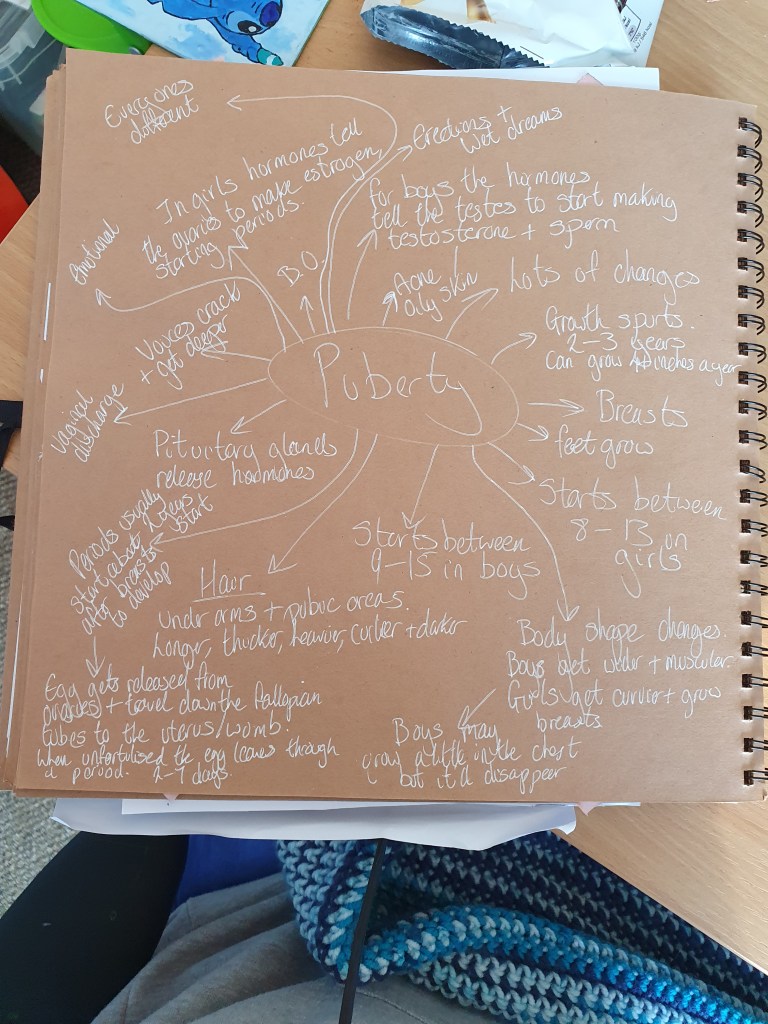 Puberty
Everyones
different
Erections +
Wet dreams
In girls hormones tell
the ovaries to make estrogen,
starting periods.
for boys the hormones
tell the testes to start making
testosterone + sperm
Emotional
B.O.
Acne
oily skin
Lots of changes
Voices crack
+ get deeper
Growth spurts.
2-3 years
can grow 4 inches a year
Vaginal
discharge
Breasts
feet grow
Pituitary glands
release hormones
Starts between
8-13 in
girls
Starts between
9-15 in boys
Periods usually
start about 2 years
after breasts start
to develop
Hair
Under arms + pubic areas.
Longer, thicker, heavier, curlier + darker
Body shape changes.
Boys get wider + muscular
Girls get curvier + grow
breasts
Egg gets released from
+ travel down the fallopian
tubes to the uterus/womb.
When unfertilised the egg leaves through
a period. 2-7 days.
Boys may
grow a little in the chest
but it'd disappear